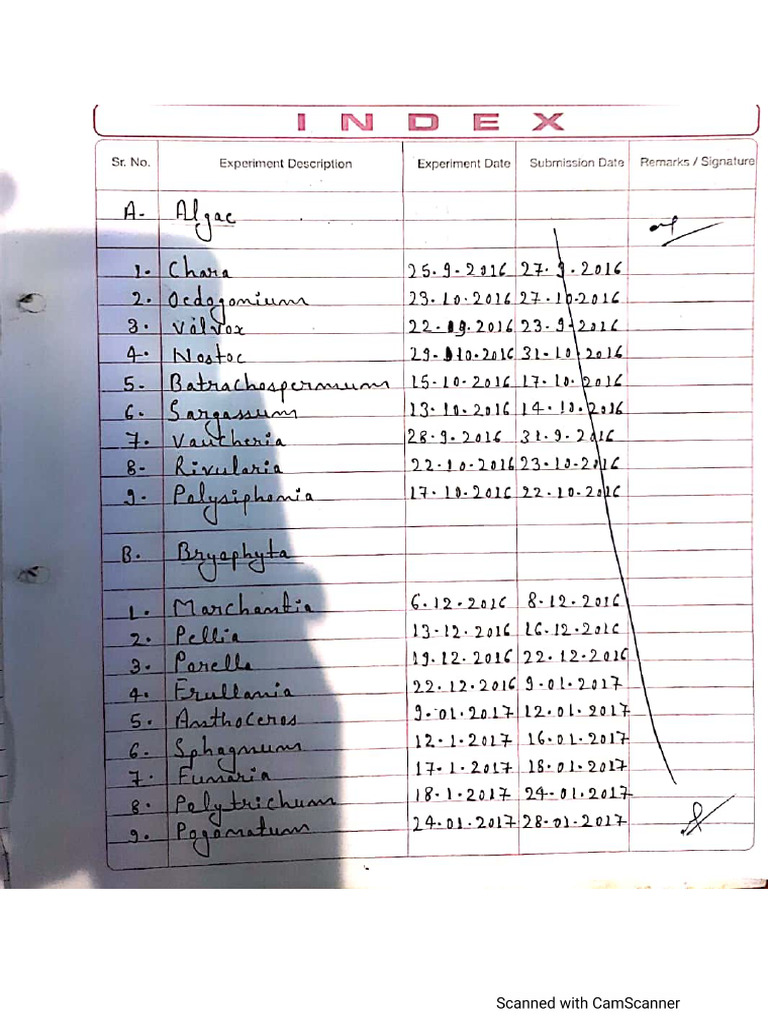 INDEX
Sr. No. Experiment Description Experiment Date Submission Date Remarks / Signature
A- Algae
1. Chara 25.9.2016 27.9.2016
2. Oedogonium 23.10.2016 27.10.2016
3. Valvox 22.09.2016 23.9.2016
4. Nostoc 29.10.2016 31.10.2016
5- Batrachospermum 15.10.2016 17.10.2016
6. Sargassum 13.10.2016 14.10.2016
7. Vautheria 28.9.2016 31.9.2016
8- Rivularia 22.10.2016 23.10.2016
9. Polysiphonia 17.10.2016 22.10.2016
B. Bryophyta
1. Marchantia 6.12.2016 8.12.2016
2. Pellia 13.12.2016 16.12.2016
3. Porella 19.12.2016 22.12.2016
4. Frullania 22.12.2016 9.01.2017
5. Anthoceros 9.01.2017 12.01.2017
6. Sphagnum 12.1.2017 16.01.2017
7. Funaria 17.1.2017 18.01.2017
8. Polytrichum 18.1.2017 24.01.2017
9. Pogonatum 24.01.2017 28.01.2017
Scanned with CamScanner